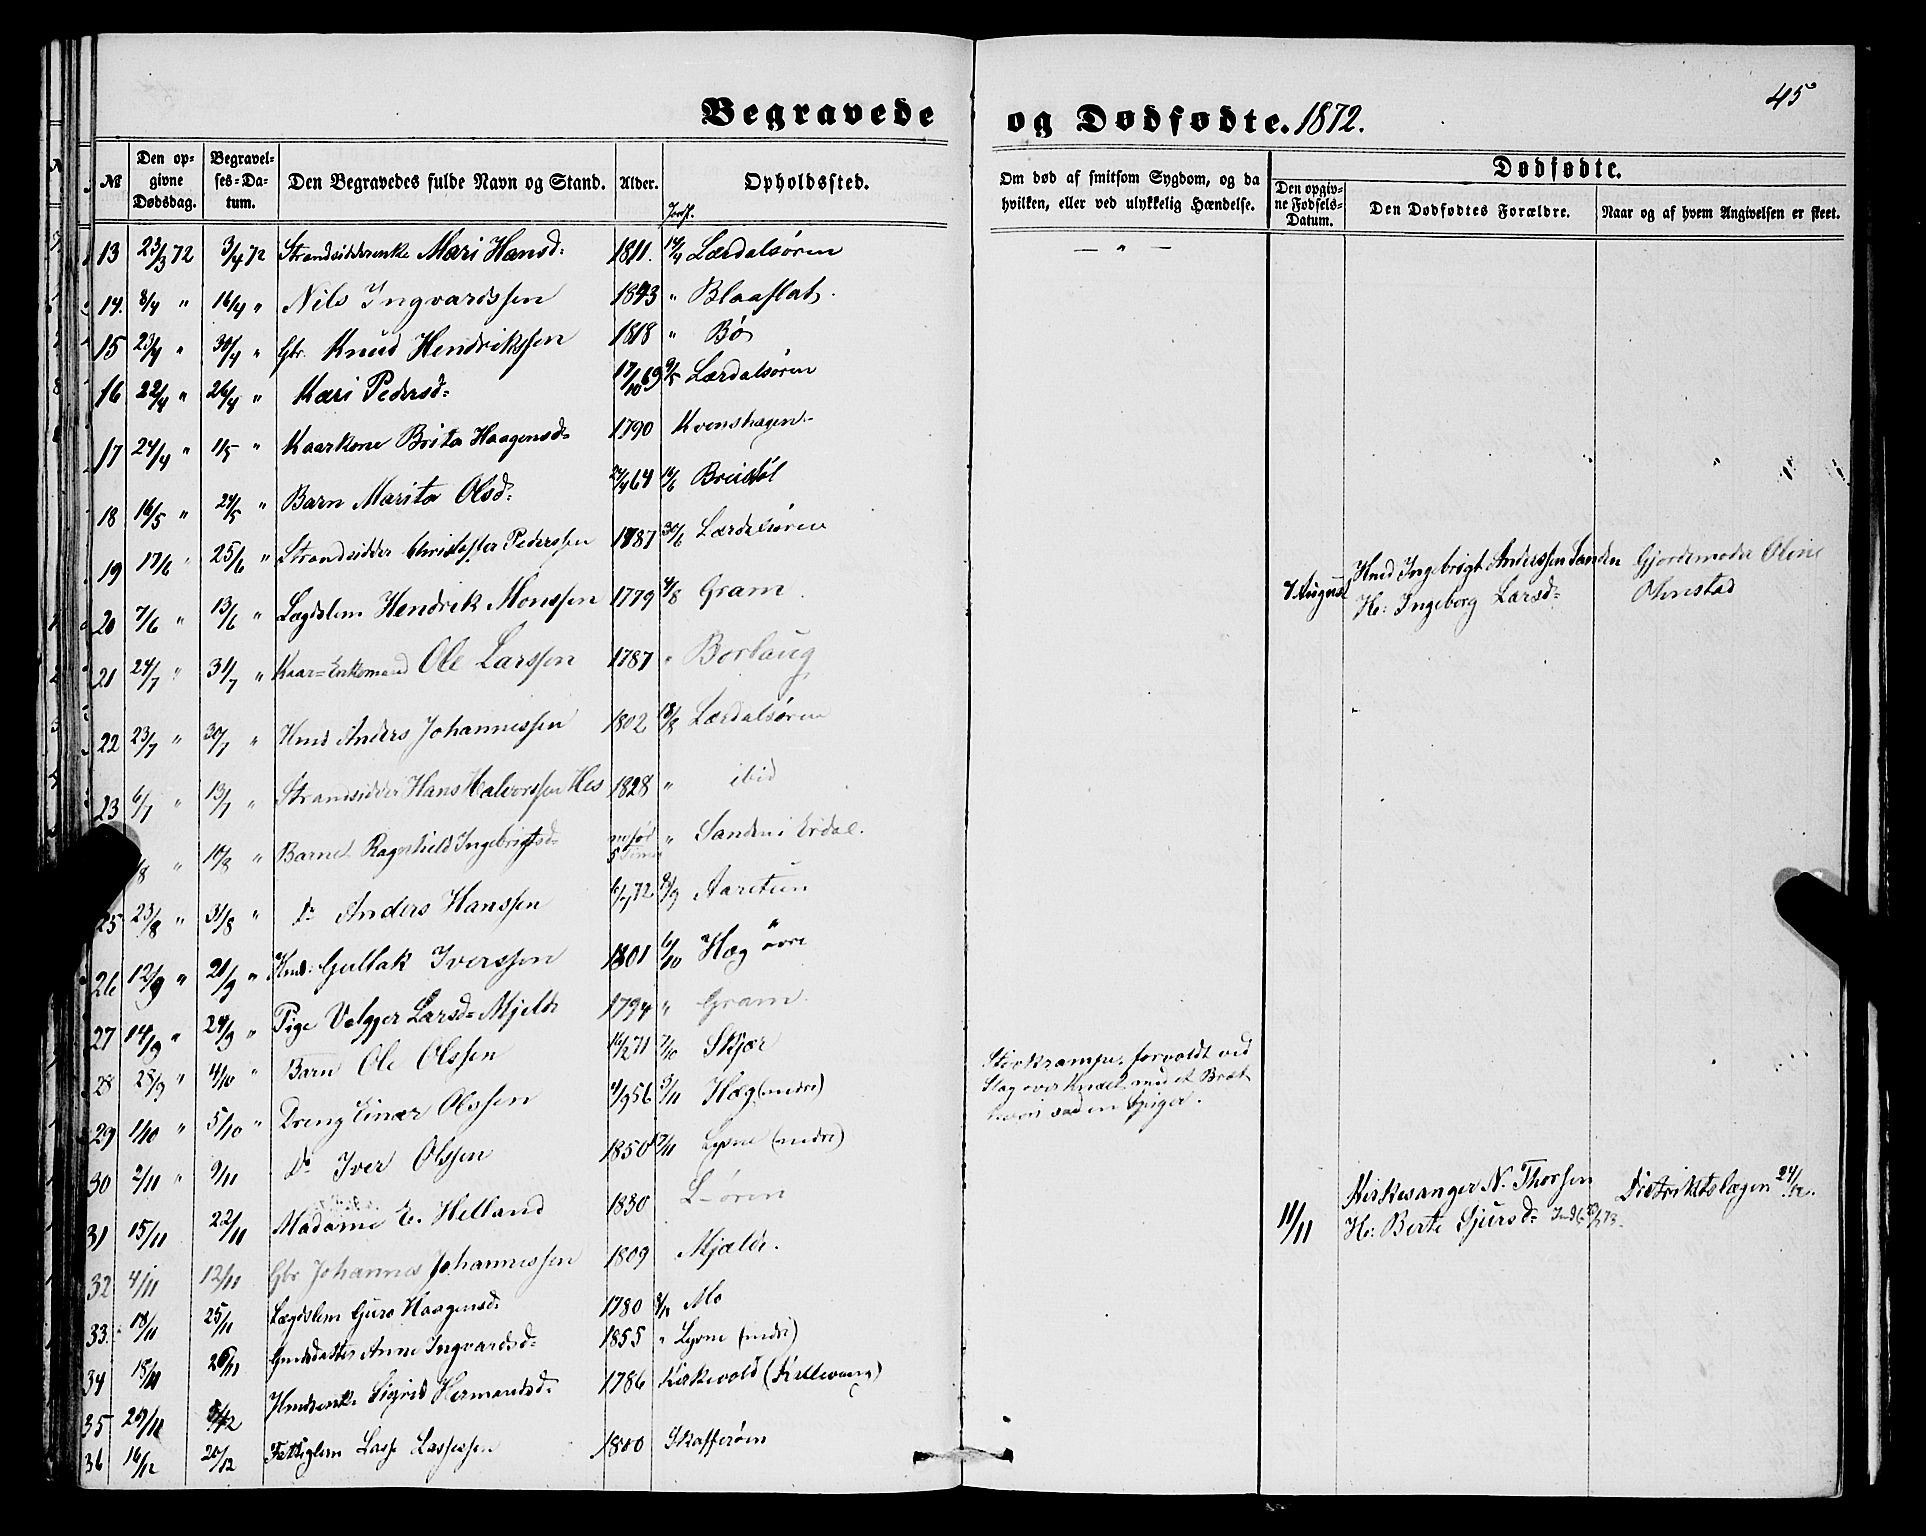 45
Begravede og Dødfødte. 1872.
№ Den opgivne Dødsdag. Begravelses-Datum. Den Begravedes fulde Navn og Stand. Alder. Opholdssted. Om død af smitsom Sygdom, og da hvilken, eller ved ulykkelig Hændelse. Dødfødte. Den opgivne Fødsels-Datum. Den Dødfødtes Forældre. Naar og af hvem Angivelsen er skeet.
Jordf.
13 23/3 72 3/4 72 Strandsidderenke Mari Hansd: 1811. 14/4 Lærdalsören — " —
14. 8/4 " 16/4 " Nils Ingvardssen 1843 " Blaaflat.
15 23/4 " 30/4 " Gbr. Knud Hendrikssen 1818 " Bö
16 22/4 " 26/4 " Kari Pedersd= 17/10 69 9/5 Lærdalsören
17 24/4 " 1/5 " Kaarkone Brita Haagensd= 1790 Kvenshagen
18 16/5 " 24/5 " Barn Marita Olsd: 24/4 64 16/6 Breistöl
19 17/6 " 25/6 " Strandsidder Christoffer Pederssen 1787 30/6 Lærdalsören
20 7/6 " 13/6 " Lægdslem Hendrik Monssen 1779 4/8 Gram.
7 August Hmd Ingebrigt Anderssen Sanden Gjordemoder Oline
H: Ingeborg Larsd= Olmstad
21 24/7 " 31/7 " Kaar=Enkemand Ole Larssen 1787 " Borlaug
22 23/7 " 30/7 " Hmd Anders Johannessen 1802 18/8 Lærdalsören
23 6/7 " 13/7 " Strandsidder Hans Halvorssen Hes 1828 " ibid
/8 " 10/8 " Barnet Ragnhild Ingebrigtsd= 5 Timer " Sanden i Erdal.
25 23/8 " 31/8 " Do Anders Hanssen 72 Aaretun
26 12/9 " 21/9 " Hmd: Gullak Iverssen 1801 6/10 Hæg övre
27 14/9 " 24/9 " Pige Valgjer Larsd= Mjelde 1794 " Gram.
28 28/9 " 4/10 " Barn Ole Olssen 16/2 71 7/10 Skjær
29 1/10 " 5/10 " Dreng Einar Olssen 4/9 56 3/11 Hæg (nedre) Stivkrampe, forvoldt ved
Slag over Knæet med et Bræt
hvori sad en Spiger.
30 2/11 " 9/11 Do Iver Olssen 1850 17/11 Lysne (nedre)
31 15/11 22/11 Madame E. Helland 1830 L-ören
11/11 Kirkesanger N. Thorsen Distriktslægen 24/12.
H: Berte Sjursd=
32 4/11 12/11 Gbr Johannes Johannessen 1809 Mjælde.
33. 18/11 25/11 Lægdslem Guro Haagensd: 1780 8/12 Mo
34 18/11 26/11 Gmdsdatter Anne Ingvardsd= 1855 " Lysne (nedre)
35 29/11 5/12 Hmdsenke Sigrid Hermandsd= 1786 Kirkevold
36 16/12 20/12 Fattiglem Lasse Lassessen 1800 Skafferöen